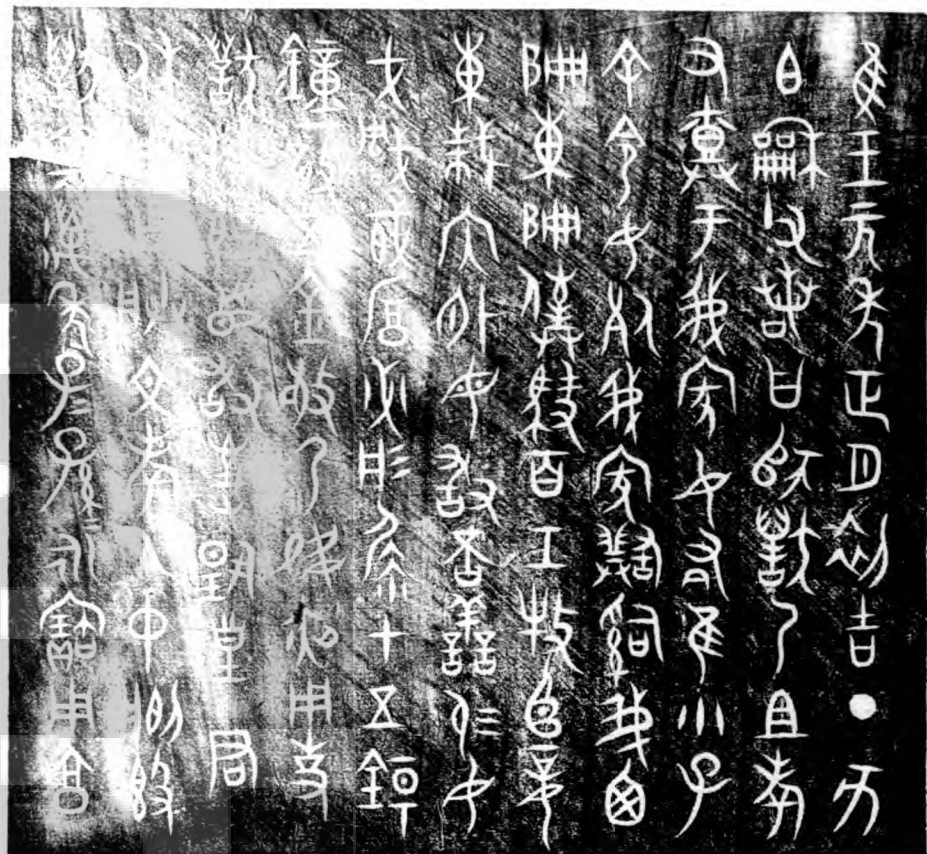 隹王元年正月初吉丁亥
白龢父若曰師毀乃且考
又于我家女有隹小子
余令女死我家𤔲我西
扁東扁僕馭百工牧臣妾
東裁內外毋敢否善易女
戈琱必彤沙十五錞
鐘一磬五金敬乃夙夜用事
毀拜𩒨首敢對揚皇君
休用乍朕文考乙中簋
毀其萬年子子孫孫永寶用享